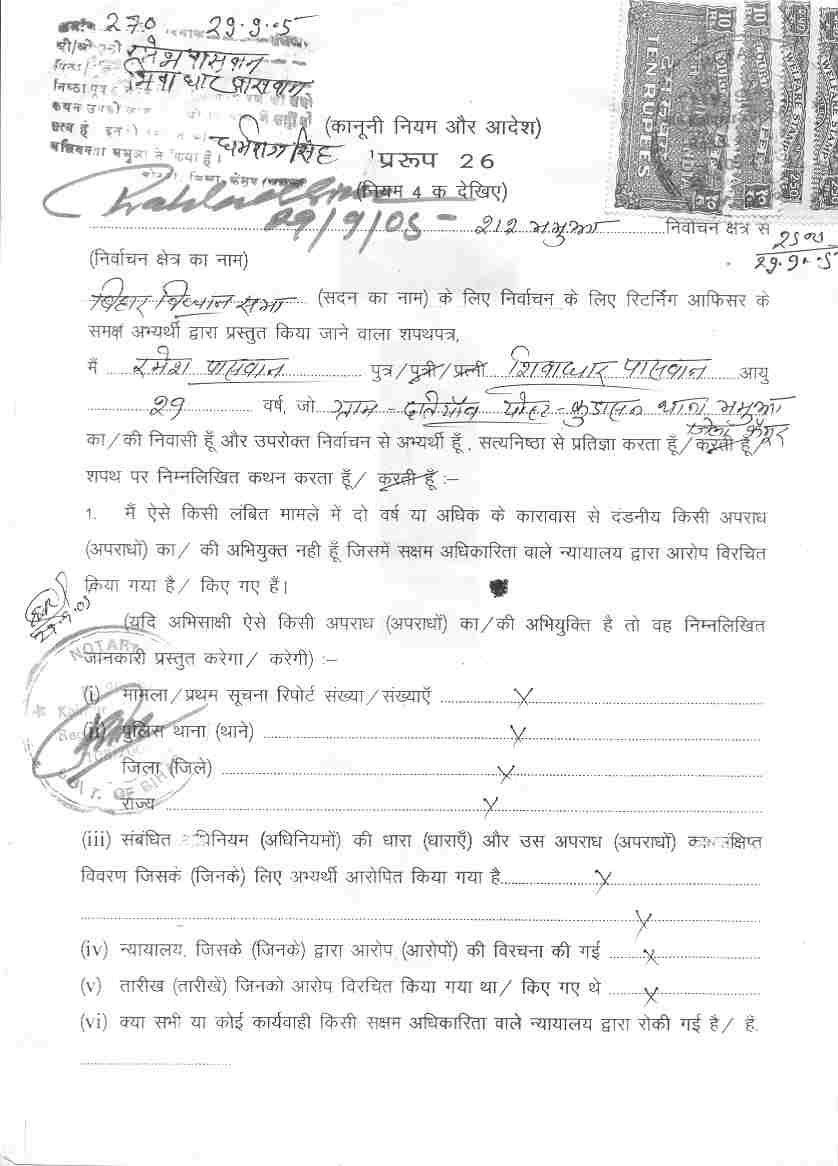 270 29.9.05
श्री/श्रीमती रमेश पासवान
शिवाधार पासवान
सत्य हूँ
धर्मराज सिंह
29/9/05
TEN RUPEES
(कानूनी नियम और आदेश)
प्ररूप 26
(नियम 4 क देखिए)
212 भभुआ निर्वाचन क्षेत्र से
29.9.05
(निर्वाचन क्षेत्र का नाम)
बिहार विधान सभा (सदन का नाम) के लिए निर्वाचन के लिए रिटर्निंग आफिसर के
समक्ष अभ्यर्थी द्वारा प्रस्तुत किया जाने वाला शपथपत्र,
मैं रमेश पासवान पुत्र/पुत्री/पत्नी शिवाधार पासवान आयु
29 वर्ष, जो ग्राम - दतियाँव पोस्ट - कुडासन थाना भभुआ
जिला कैमूर
का/की निवासी हूँ और उपरोक्त निर्वाचन से अभ्यर्थी हूँ, सत्यनिष्ठा से प्रतिज्ञा करता हूँ/करती हूँ/
शपथ पर निम्नलिखित कथन करता हूँ/ करती हूँ :–
1. मैं ऐसे किसी लंबित मामले में दो वर्ष या अधिक के कारावास से दंडनीय किसी अपराध
(अपराधों) का/ की अभियुक्त नही हूँ जिसमें सक्षम अधिकारिता वाले न्यायालय द्वारा आरोप विरचित
किया गया है/ किए गए हैं।
(यदि अभिसाक्षी ऐसे किसी अपराध (अपराधों) का/की अभियुक्ति है तो वह निम्नलिखित
जानकारी प्रस्तुत करेगा/ करेगी) :–
NOTARY
(i) मामला/प्रथम सूचना रिपोर्ट संख्या/संख्याएँ X
(ii) पुलिस थाना (थाने) X
जिला (जिले) X
राज्य X
(iii) संबंधित अधिनियम (अधिनियमों) की धारा (धाराएँ) और उस अपराध (अपराधों) का संक्षिप्त
विवरण जिसके (जिनके) लिए अभ्यर्थी आरोपित किया गया है X
X
(iv) न्यायालय, जिसके (जिनके) द्वारा आरोप (आरोपों) की विरचना की गई X
(v) तारीख (तारीखें) जिनको आरोप विरचित किया गया था/ किए गए थे X
(vi) क्या सभी या कोई कार्यवाही किसी सक्षम अधिकारिता वाले न्यायालय द्वारा रोकी गई है/ हैं.